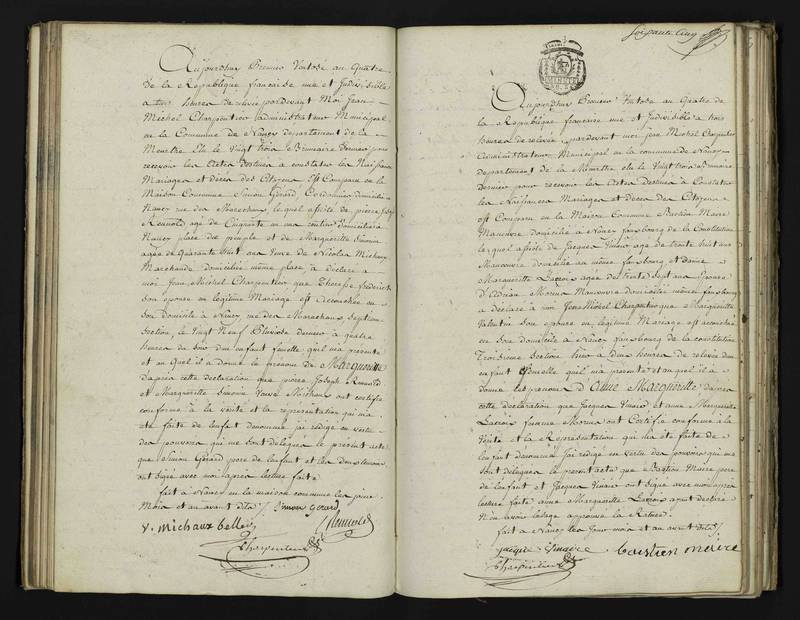 Aujourdhui Premier Ventose an Quatre
de la République française une et Indivisible
a trois heures de relevée pardevant Moi Jean
Michel Charpentier administrateur Municipal
de la Commune de Nancy departement de la
Meurthe Elu le Vingt trois Brumaire dernier pour
recevoir les Actes destinés a constater les Naissances
Mariages et décès des Citoyens Est Comparu en la
Maison Commune Simon Gérard Cordonnier domicilié a
Nancy rue des Marechaux lequel assisté de pierre Joseph
agé de Cinquante un ans domicilié a
Nancy place du peuple et de Marguerite Simonin
agée de Quarante huit ans Veuve de Nicolas Michaux
Marchande domiciliée même place a déclaré a
moi Jean Michel Charpentier que Therese frederick
son epouse en légitime Mariage est accouchée en
son Domicile a Nancy rue des Marechaux septieme
Section le Vingt Neuf Pluviose dernier a quatre
heures du soir d'un enfant femelle qu'il m'a présenté
et au Quel il a donné le prénom de Marguerite
d'apres cette déclaration que pierre Joseph
et Marguerite Simonin Veuve Michaux ont certifié
conforme a la vérité et la représentation qui m'a
été faite de l'enfant dénommé j'ai rédigé en vertu
des pouvoirs qui me sont délégués le présent acte
que Simon Gérard pere de l'enfant et les deux témoins
ont signé avec moi après lecture faite
fait a Nancy en la maison commune les jour
Mois et an avant dits Simon gerard
v. michaux
Charpentier
Soixante Cinq
Aujourdhui Premier Ventose an Quatre de
la République française une et Indivisible a trois
heures de relevée pardevant moi Jean Michel Charpentier
administrateur Municipal de la commune de Nancy
departement de la Meurthe elu le Vingt trois Brumaire
dernier pour recevoir les Actes destinés a Constater
les Naissances Mariages et décès des Citoyens
est Comparu en la Maison Commune Bastien Maire
Manœuvre domicilié a Nancy faubourg de la Constitution
lequel assisté de Jacques age de trente huit ans
Manœuvre domicilié au même faubourg et d'anne
Marguerite Lacroix agée de trente sept ans Epouse
d'Adrian Morua Manœuvre domicilié même faubourg
a déclaré a moi Jean Michel Charpentier que Marguerite
Valentin son epouse en légitime Mariage est accouchée
en son domicile a Nancy faubourg de la constitution
Troisieme Section hier a dix heures de relevée d'un
enfant femelle qu'il m'a présenté et auquel il a
donné les prenoms d'Anne Marguerite d'apres
cette déclaration que Jacques et anne Marguerite
Lacroix femme Morua ont Certifié conforme a la
Vérité et la Représentation qui m'a été faite de
l'enfant dénommé j'ai rédigé en vertu des pouvoirs qui me
sont délégués le present acte que Bastien Maire pere
de l'enfant et Jacques ont signé avec moi après
lecture faite anne Marguerite Lacroix ayant déclaré
N'en savoir l'usage approuvé la Rature.
fait a Nancy les jour mois et an avant dits
jacque bastien maire
Charpentier